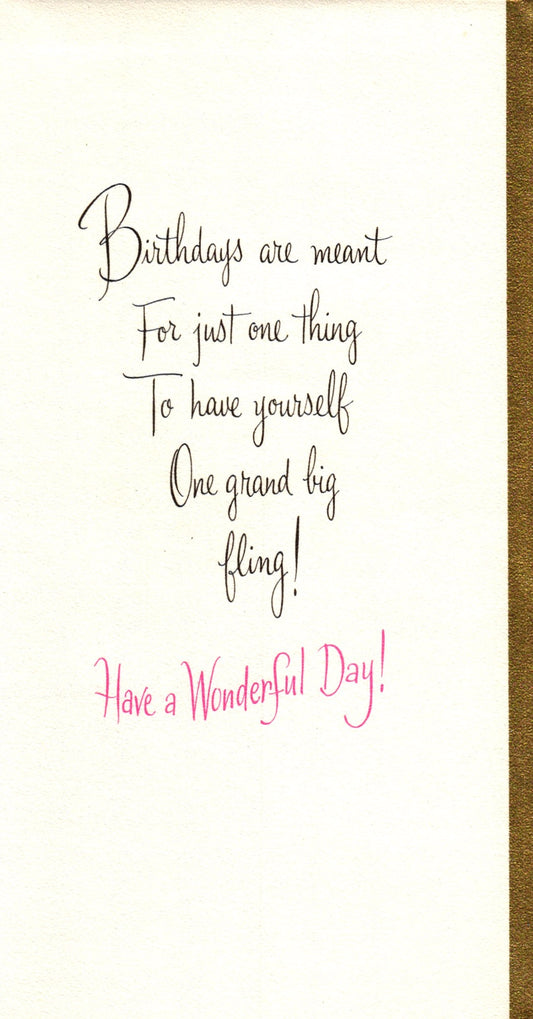 Birthdays are meant
For just one thing
To have yourself
One grand big
fling!
Have a Wonderful Day!